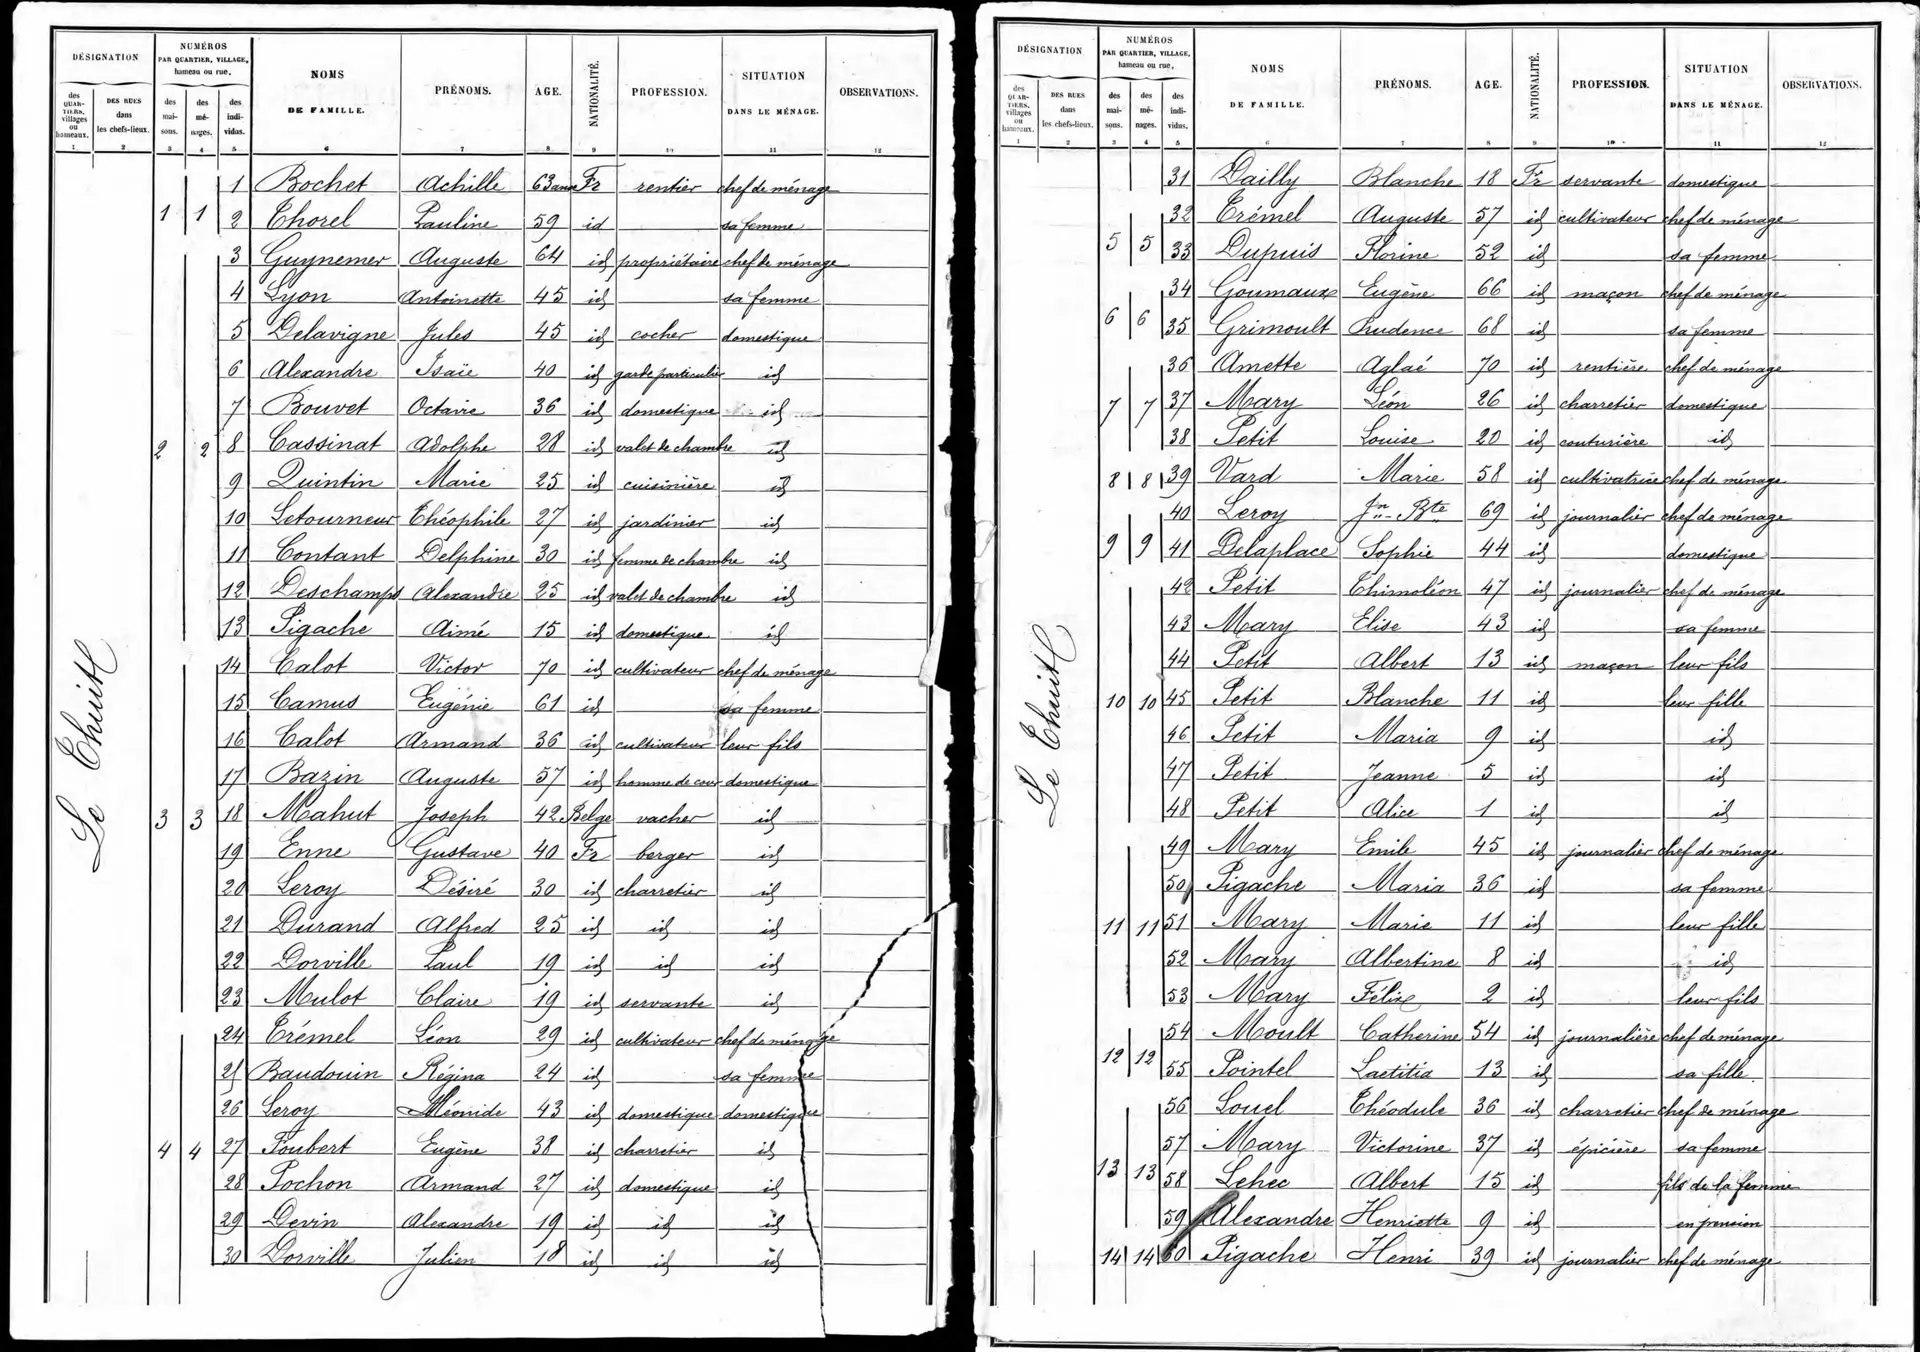 DÉSIGNATION
NUMÉROS
PAR QUARTIER, VILLAGE,
hameau ou rue.
des QUARTIERS, villages ou hameaux.
DES RUES dans les chefs-lieux.
des maisons.
des ménages.
des individus.
NOMS DE FAMILLE.
PRÉNOMS.
AGE.
NATIONALITÉ.
PROFESSION.
SITUATION DANS LE MÉNAGE.
OBSERVATIONS.
1 2 3 4 5 6 7 8 9 10 11 12
Le Thuit
1 Bochet Achille 63 ans Fr rentier chef de ménage
1 1 2 Thorel Pauline 59 id sa femme
3 Guynemer Auguste 64 id propriétaire chef de ménage
4 Lyon Antoinette 45 id sa femme
5 Delavigne Jules 45 id cocher domestique
6 Alexandre Isaïe 40 id garde particulier id
7 Bouvet Octavie 36 id domestique id
2 2 8 Cassinat Adolphe 28 id valet de chambre id
9 Quintin Marie 25 id cuisinière id
10 Letourneur Théophile 27 id jardinier id
11 Contant Delphine 30 id femme de chambre id
12 Deschamps Alexandre 25 id valet de chambre id
13 Pigache Aimé 15 id domestique id
14 Calot Victor 70 id cultivateur chef de ménage
15 Camus Eugénie 61 id sa femme
16 Calot Armand 36 id cultivateur leur fils
17 Bazin Auguste 57 id homme de cour domestique
3 3 18 Mahut Joseph 42 Belge vacher id
19 Enne Gustave 40 Fr berger id
20 Leroy Désiré 30 id charretier id
21 Durand Alfred 25 id id id
22 Dorville Paul 19 id id id
23 Mulot Claire 19 id servante id
24 Trémel Léon 29 id cultivateur chef de ménage
25 Baudouin Régina 24 id sa femme
26 Leroy Méonide 43 id domestique domestique
4 4 27 Foubert Eugène 38 id charretier id
28 Pochon Armand 27 id domestique id
29 Devin Alexandre 19 id id id
30 Dorville Julien 18 id id id
DÉSIGNATION
NUMÉROS
PAR QUARTIER, VILLAGE,
hameau ou rue.
des QUARTIERS, villages ou hameaux.
DES RUES dans les chefs-lieux.
des maisons.
des ménages.
des individus.
NOMS DE FAMILLE.
PRÉNOMS.
AGE.
NATIONALITÉ.
PROFESSION.
SITUATION DANS LE MÉNAGE.
OBSERVATIONS.
1 2 3 4 5 6 7 8 9 10 11 12
Le Thuit
31 Dailly Blanche 18 Fr servante domestique
32 Trémel Auguste 57 id cultivateur chef de ménage
5 5 33 Dupuis Florine 52 id sa femme
34 Goumaux Eugène 66 id maçon chef de ménage
6 6 35 Grimoult Prudence 68 id sa femme
36 Amette Aglaé 70 id rentière chef de ménage
7 7 37 Mary Léon 26 id charretier domestique
38 Petit Louise 20 id couturière id
8 8 39 Vard Marie 58 id cultivatrice chef de ménage
40 Leroy Jn Bte 69 id journalier chef de ménage
9 9 41 Delaplace Sophie 44 id domestique
42 Petit Thimoléon 47 id journalier chef de ménage
43 Mary Elise 43 id sa femme
44 Petit Albert 13 id maçon leur fils
10 10 45 Petit Blanche 11 id leur fille
46 Petit Maria 9 id id
47 Petit Jeanne 5 id id
48 Petit Alice 1 id id
49 Mary Emile 45 id journalier chef de ménage
50 Pigache Maria 36 id sa femme
11 11 51 Mary Marie 11 id leur fille
52 Mary Albertine 8 id id
53 Mary Félix 2 id leur fils
54 Moult Catherine 54 id journalière chef de ménage
12 12 55 Pointel Laetitia 13 id sa fille
56 Louel Théodule 36 id charretier chef de ménage
57 Mary Victorine 37 id épicière sa femme
13 13 58 Lehec Albert 15 id fils de la femme
59 Alexandre Henriette 9 id en pension
14 14 60 Pigache Henri 39 id journalier chef de ménage